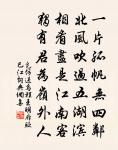 一片孤帆無四鄰
北風吹過五湖濱
相看盡是江南客
獨有君為嶺外人